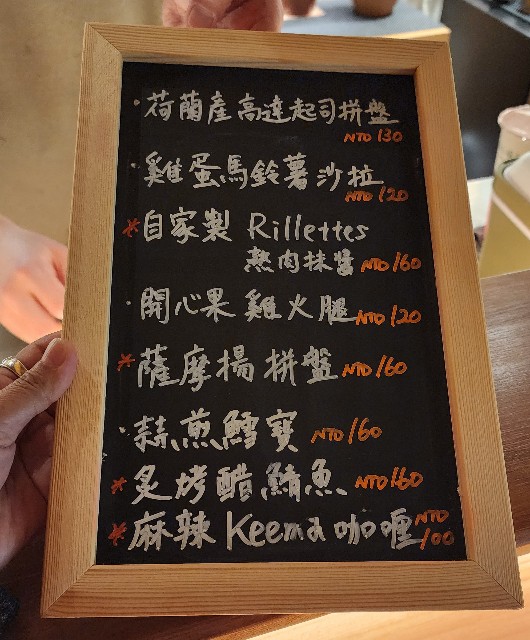 ·荷蘭産高達起司拼盤
NTD 130
·雞蛋馬鈴薯沙拉
NTD 120
*自家製 Rillettes
熟肉抹醬 NTD 160
·開心果雞火腿 NTD 120
*薩摩揚拼盤 NTD 160
·蒜煎鱈寶 NTD 160
*炙烤醋鯖魚 NTD 160
*麻辣 Keema 咖喱 NTD
100